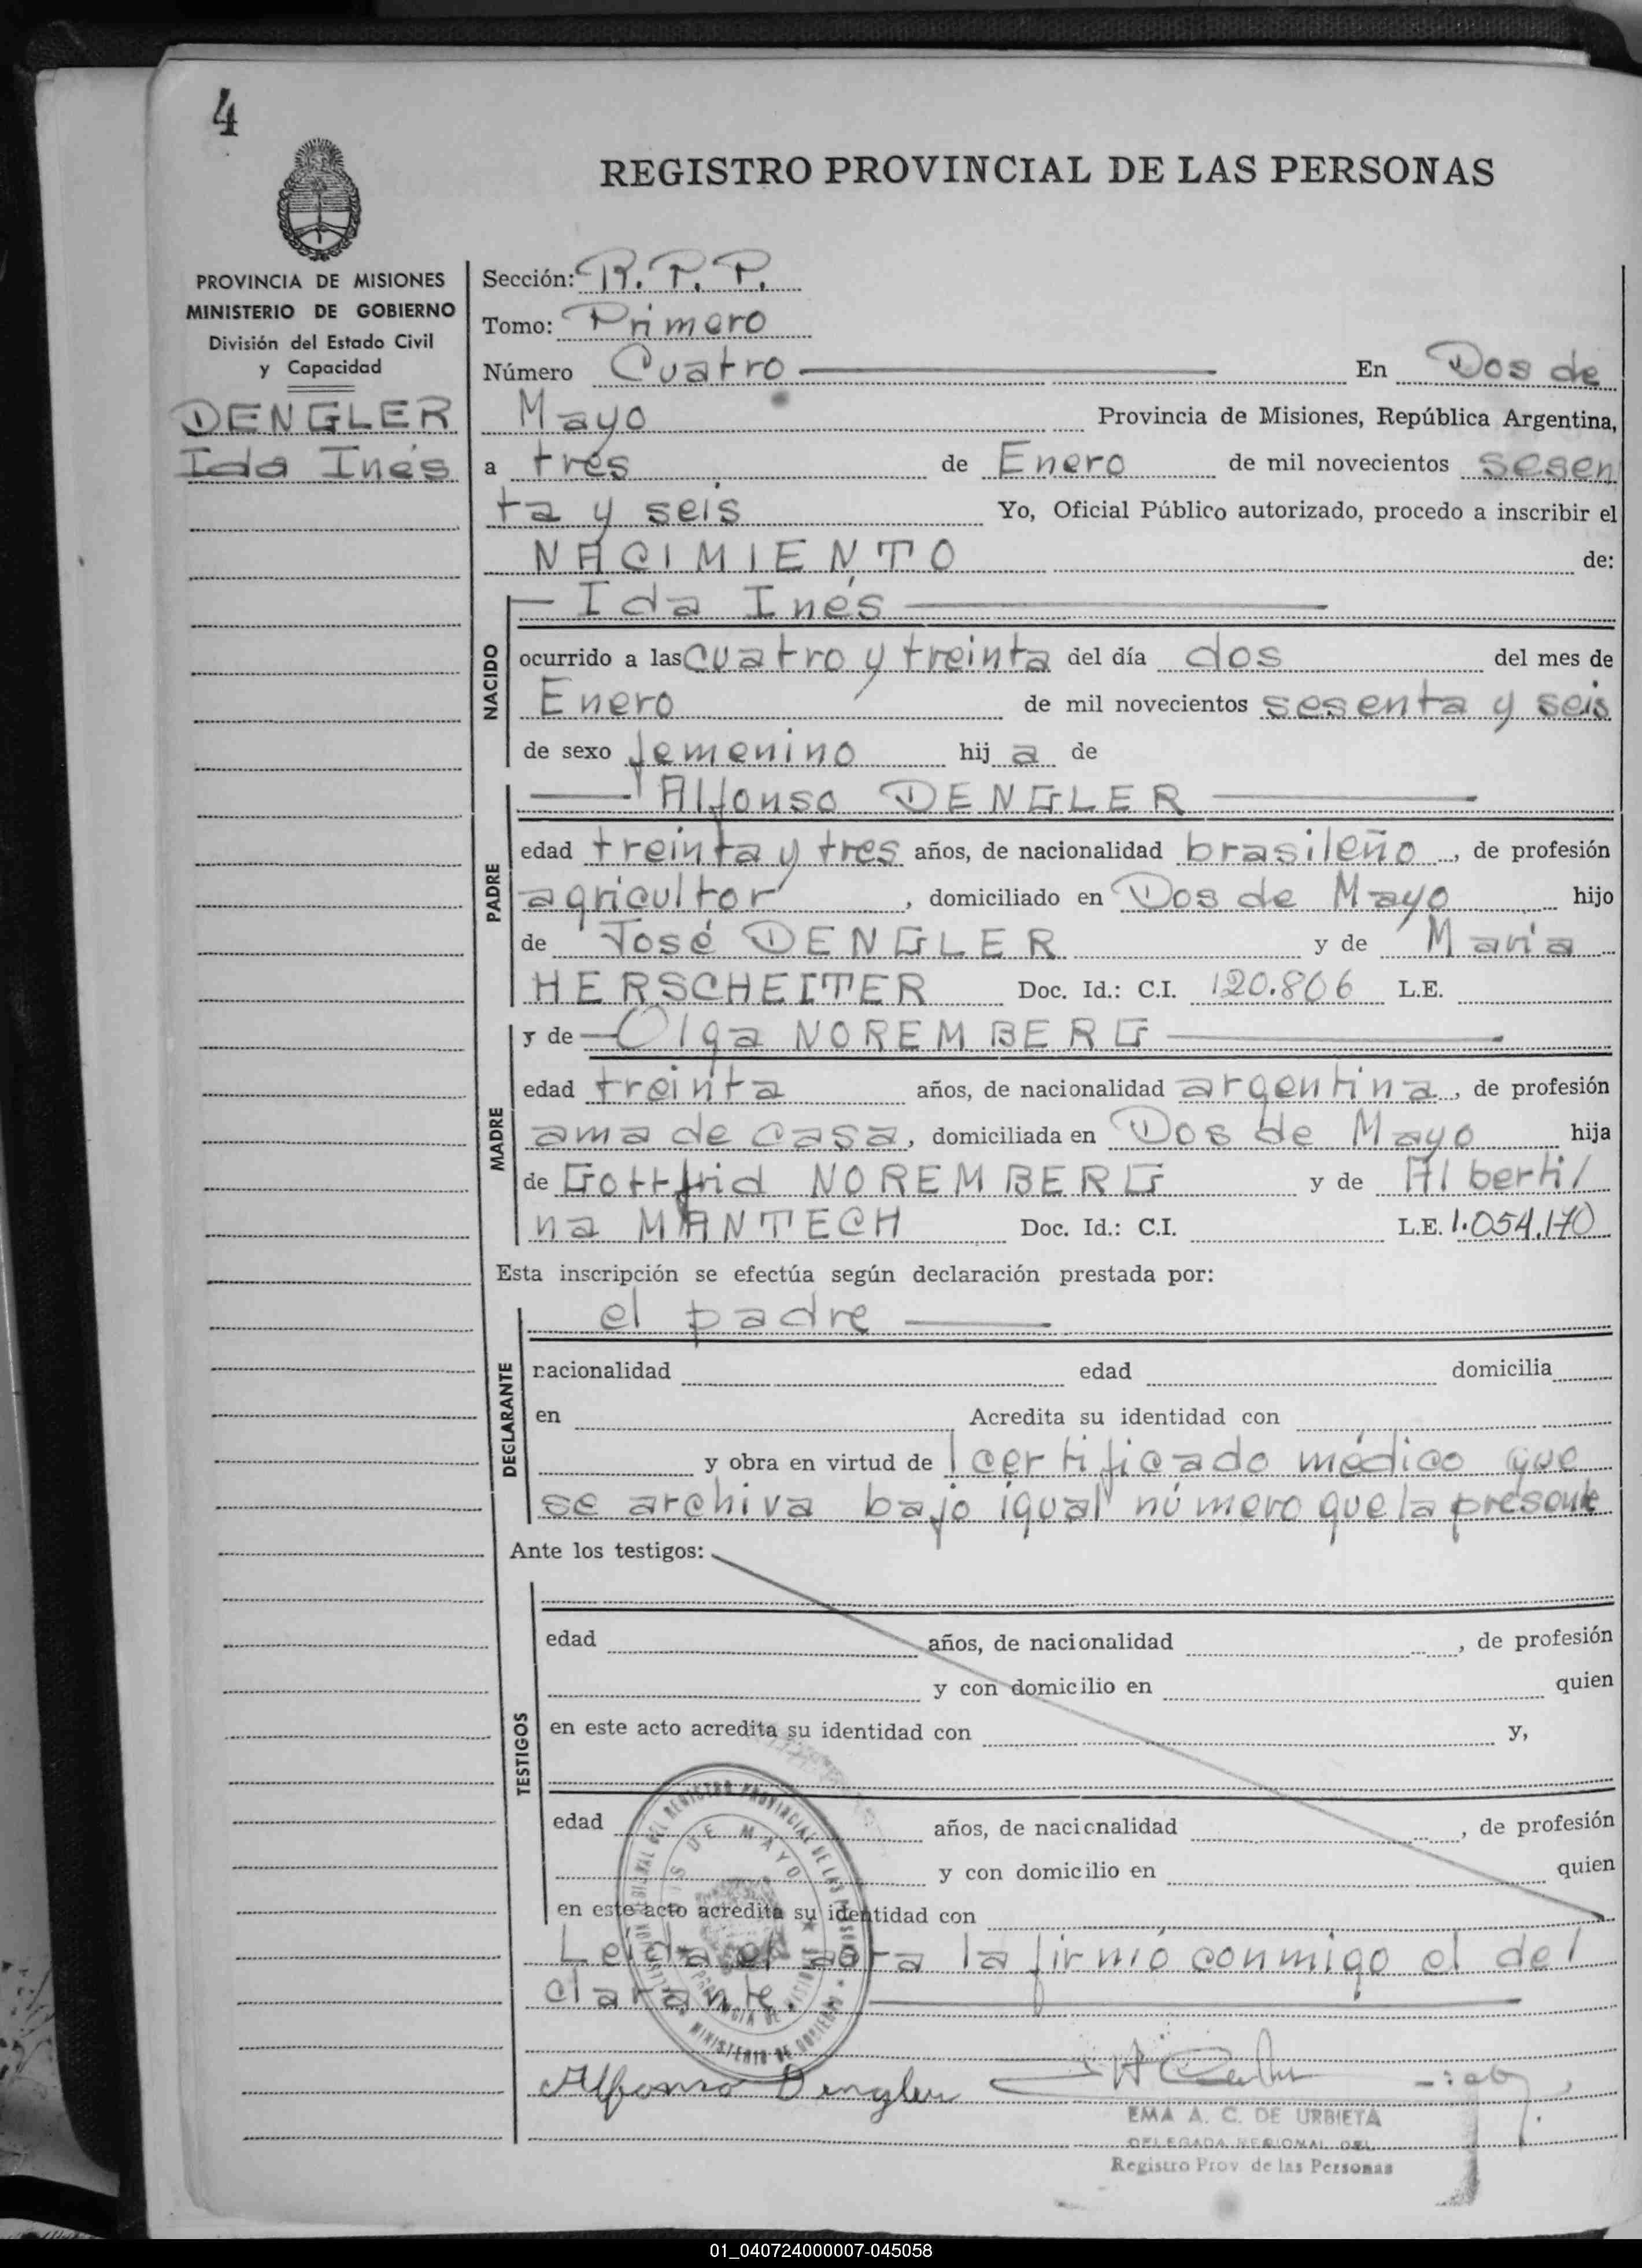 4
REGISTRO PROVINCIAL DE LAS PERSONAS
PROVINCIA DE MISIONES
MINISTERIO DE GOBIERNO
División del Estado Civil
y Capacidad
DENGLER
Ida Inés
Sección: R. P. P.
Tomo: Primero
Número Cuatro En Dos de
Mayo Provincia de Misiones, República Argentina,
a tres de Enero de mil novecientos sesen
ta y seis Yo, Oficial Público autorizado, procedo a inscribir el
NACIMIENTO de:
NACIDO
Ida Inés
ocurrido a las cuatro y treinta del día dos del mes de
Enero de mil novecientos sesenta y seis
de sexo femenino hij a de
PADRE
Alfonso DENGLER
edad treinta y tres años, de nacionalidad brasileño, de profesión
agricultor, domiciliado en Dos de Mayo hijo
de José DENGLER y de María
HERSCHEITER Doc. Id.: C.I. 120.806 L.E.
MADRE
y de Olga NOREMBERG
edad treinta años, de nacionalidad argentina, de profesión
ama de casa, domiciliada en Dos de Mayo hija
de Gottfrid NOREMBERG y de Alberti/
na MANTECH Doc. Id.: C.I. L.E. 1.054.170
Esta inscripción se efectúa según declaración prestada por:
DECLARANTE
el padre
nacionalidad edad domicilia
en Acredita su identidad con
y obra en virtud de l certificado médico que
se archiva bajo igual número que la presente
Ante los testigos:
TESTIGOS
edad años, de nacionalidad , de profesión
y con domicilio en quien
en este acto acredita su identidad con y,
edad años, de nacionalidad , de profesión
y con domicilio en quien
en este acto acredita su identidad con
Leída el acta la firmó conmigo el de/
clarante.
Alfonso Dengler
EMA A. C. DE URBIETA
DELEGADA REGIONAL DEL
Registro Prov de las Personas
01_040724000007-045058